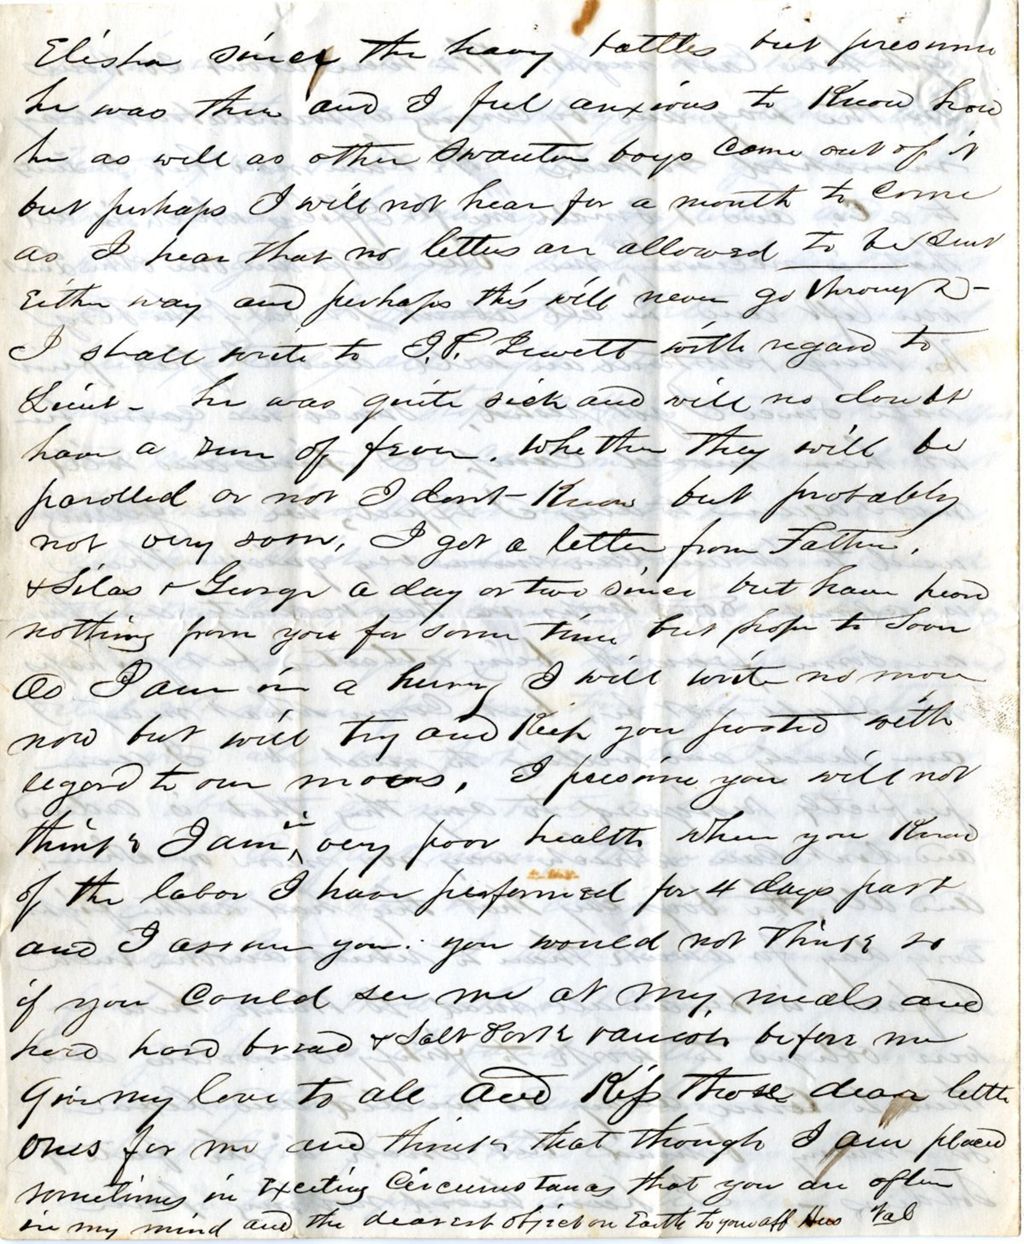 Elisha since the heavy battles but presume
he was there and I feel anxious to Know how
he as well as other Swanton boys Come out of it
but perhaps I will not hear for a month to Come
as I hear that no letters are allowed to be Sent
Either way and perhaps this will never go through -
I shall write to J.P. Jewett with regard to
Lieut - he was quite sick and will no doubt
have a run of fever. Whether they will be
parolled or not I dont Know but probably
not very soon, I got a letter from Father,
& Silas & George a day or two since but have heard
nothing from you for some time but hope to Soon
As I am in a hurry I will write no more
now but will try and Keep you posted with
regard to our moves, I presume you will not
think I am in very poor health when you Know
of the labor I have performed for 4 days past
and I assure you you would not think so
if you Could see me at my meals and
hard bread & Salt Pork vanish before me
Give my love to all and Kiss those dear little
ones for me and think that though I am placed
sometimes in Exciting Circumstances that you are often
in my mind and the dearest object on Earth to your aff Hus Val